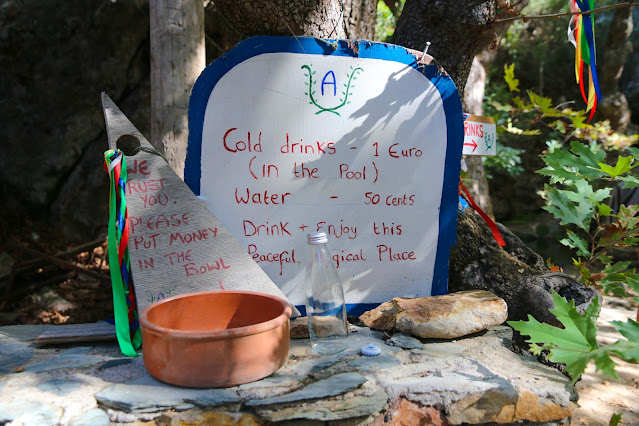 A
Cold drinks - 1 Euro
(in the Pool)
Water - 50 cents
Drink + Enjoy this
Peaceful, gical Place
WE
RUST
YOU.
PLEASE
PUT MONEY
IN THE
BOWL
RINKS